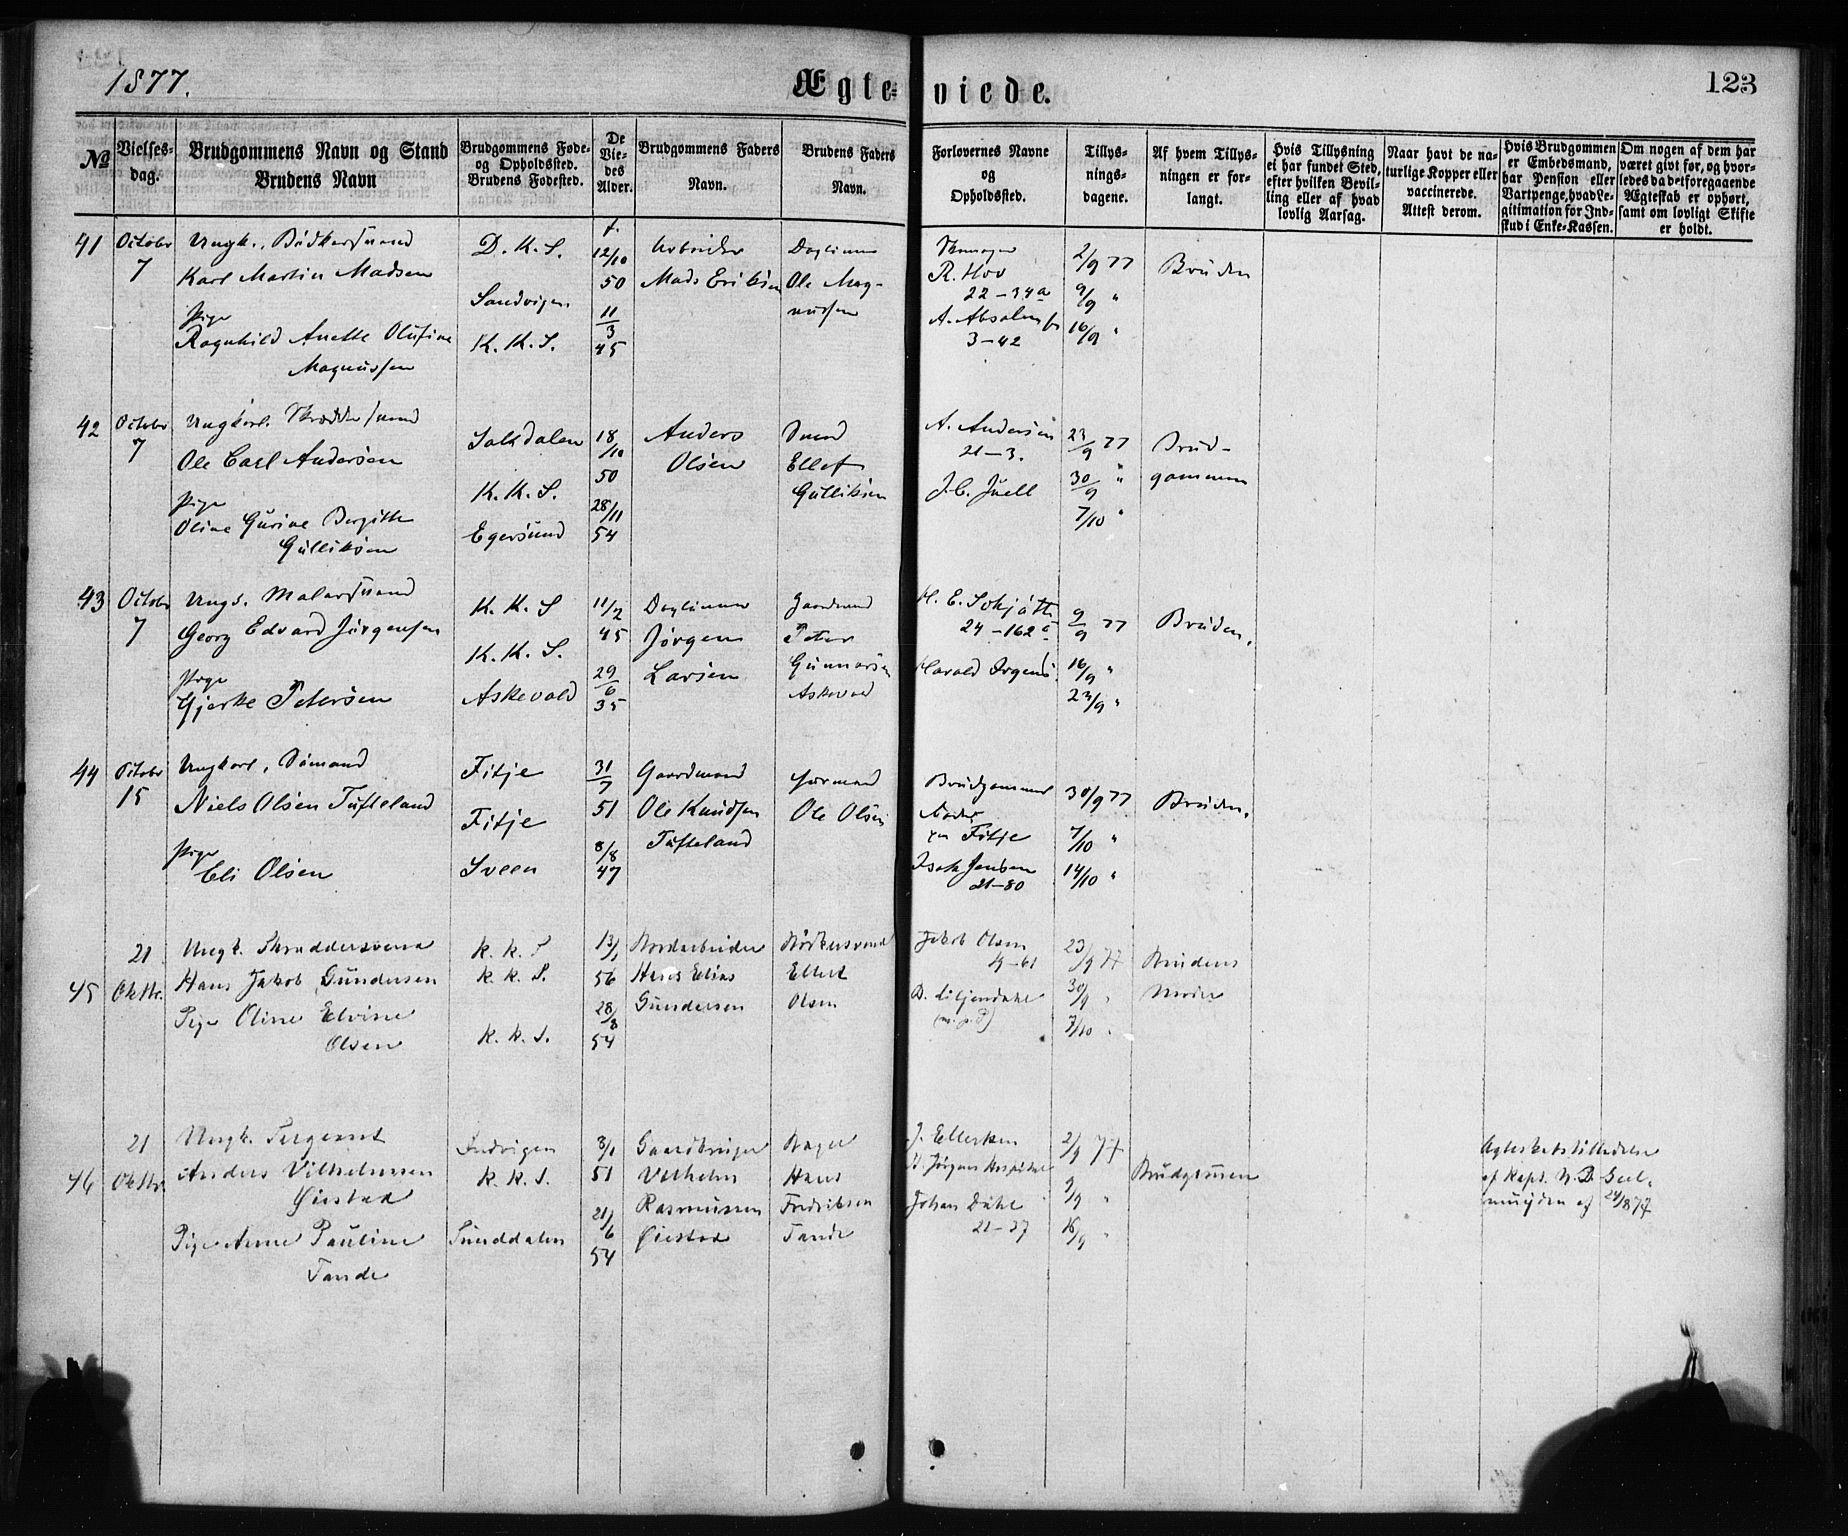 1877.
Ægte-
viede.
123
No
Vielses-
dag.
Brudgommens Navn og Stand
Brudens Navn
Brudgommens Føde-
og Opholdssted.
Brudens Fødested.
De
Vie-
des
Alder.
Brudgommens Faders
Navn.
Brudens Faders
Navn.
Forlovernes Navne
og
Opholdssted.
Tillys-
nings-
dagene.
Af hvem Tillys-
ningen er for-
langt.
Hvis Tillysning
ei har fundet Sted,
efter hvilken Bevil-
ling eller af hvad
lovlig Aarsag.
Naar havt de na-
turlige Kopper eller
vaccinerede.
Attest derom.
Hvis Brudgommen
er Embedsmand,
har Pension eller
Vartpenge, hvad Le-
gitimation for Ind-
skud i Enke-Kassen.
Om nogen af dem har
været givt før, og hvor-
ledes da det foregaaende
Ægteskab er ophørt,
samt om lovligt Skifte
er holdt.
41
Octobr
7
Ungk., Bødkersvend
Karl Martin Madsen
Pige
Ragnhild Anette Olufine
Magnussen
D. K. S.
Sandvigen
K. K. S.
f.
12/10
50
11/3
45
Arbeider
Mads Eriksen
Dagleiner
Ole Mag-
nussen
R. Hov
22-34a
A. Absalons
3-42
2/9 77
9/9 "
16/9 "
Bruden
42
Octobr
7
Ungkarl. Skrædder svend
Ole Carl Andersen
Pige
Oline Gurine Bergitte
Gulliksen
K. K. S.
Egersund
18/10
50
28/11
54
Anders
Olsen
Smed
Ellef
Gulliksen
A. Andersen
21-3.
J. C. Juell
23/9 77
30/9 "
7/10 "
Brud-
gommen
43
Octobr
7
Ungk. Malersvend
Georg Edvard Jørgensen
Pige
Gjertke Petersen
K. K. S
K. K. S.
Askevold
11/2
45
29/6
35
Dagleiner
Jørgen
Larsen
Gaardmand
Peter
Gunnarsen
Askevold
24-162
Harald Irgens
9/9 77
16/9 "
23/9 "
Bruden.
44
Octobr
15
Ungkarl, Sømand
Niels Olsen Tufteland
Pige
Eli Olsen
Fitje
Fitje
Sveen
31/7
51
8/8
47
Gaardmand
Ole Knudsen
Tufteland
Ole Olsen
Brudgommens
Fader
paa Fitje
Isak Jensen
21-80
30/9 77
7/10 "
14/10 "
Bruden.
45
21
Oktbr.
Ungk. Skræddersvend
Hans Jakob Gundersen
Pige Oline Elvine
Olsen
K. K. S
K. K. S.
K. K. S.
13/1
56
28/8
54
Hans Elias
Gundersen
Bødkersvend
Ellert
Olsen
Jakob Olsen
4-61
B. Liljendahl
(m. p. P)
23/9 77
30/9 "
7/10 "
Brudens
Moder
46
21
Oktbr.
Ungk. Sergeant
Anders Vilhelmsen
Øiestad
Pige Anne Pauline
Tande
Indvigen
K. K. S.
Sunddalen
8/1
51
21/6
54
Gaardbruger
Vilhelm
Rasmussen
Øiestad
Bager
Hans
Fredriksen
Tande
J. Ellertsen
St. Jørgens Hospital
Johan Dahl
21-37
2/9 77
9/9 "
16/9 "
Brudgommen
Ægteskabstilladelse
af Kapt. N. B. Geel-
muyden af 24/8 77